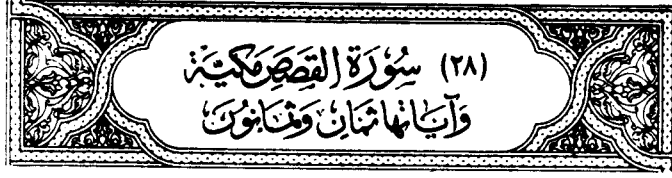 (٢٨) سُوْرَة القَصَصِ مَكيَّة
وَآيَاتها ثمَان وَثمَانون